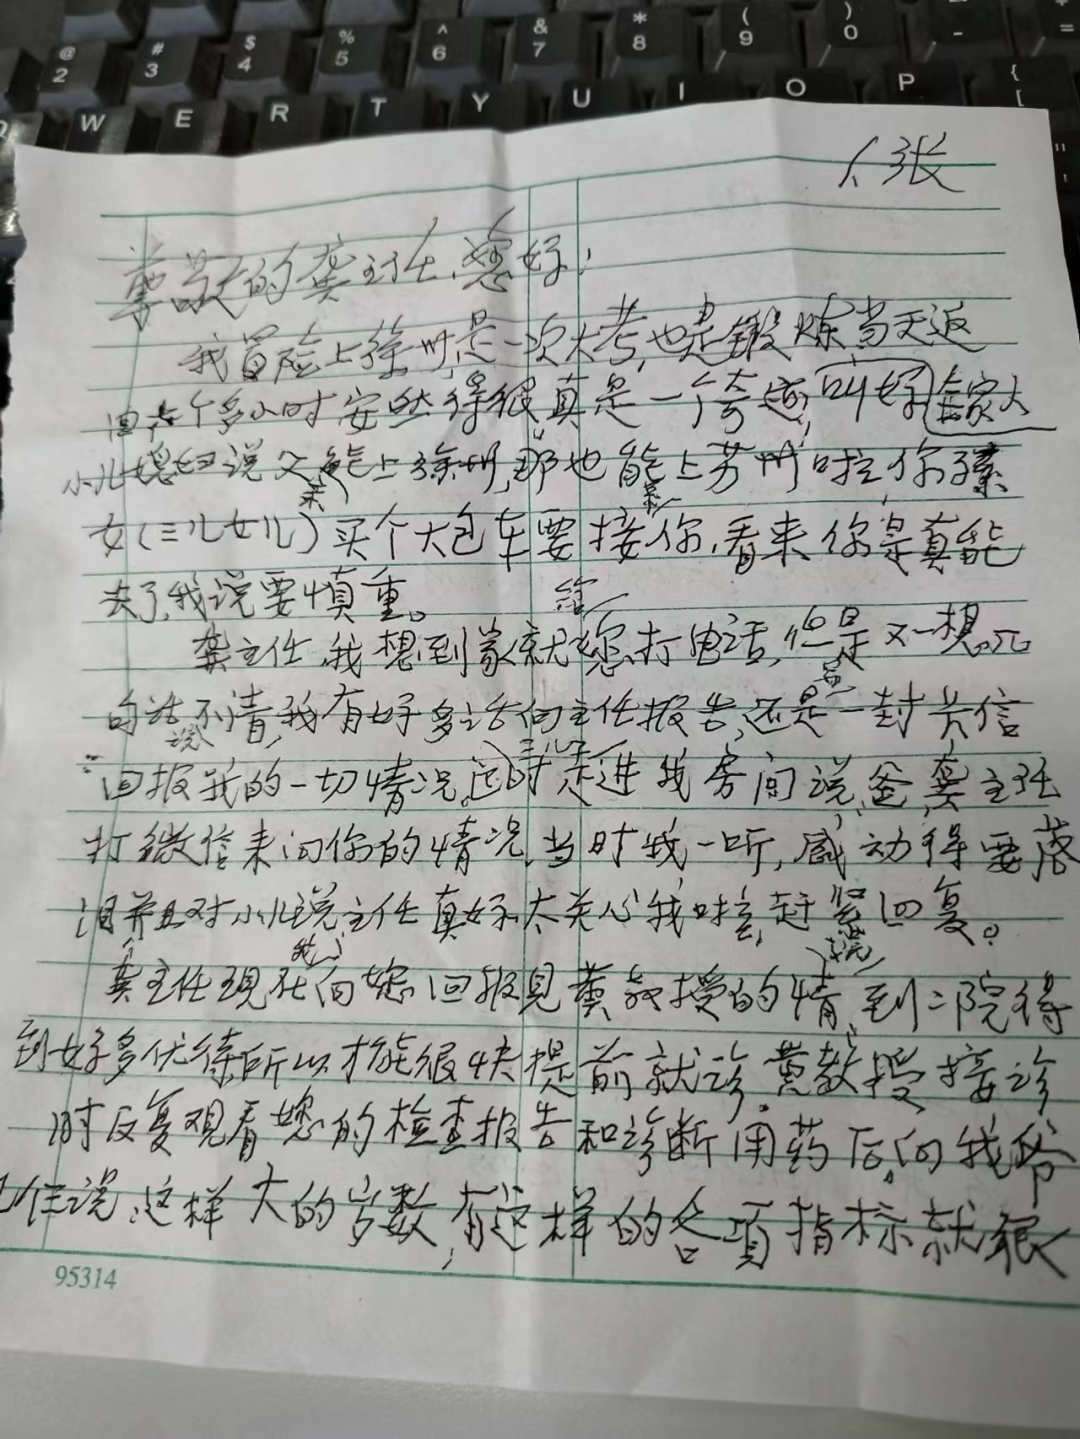 @ # $ % ^ & * ( ) - =
2 3 4 5 6 7 8 9 0
W E R T Y U I O P { [
1、张
尊敬的龚主任、您好!
我冒险上徐州是一次大考,也是锻炼当天返
回六个多小时安然得很,真是一个奇迹,叫好全家人
小儿媳妇说父亲能上徐州,那也能上苏州啦,你孙
女(三儿女儿)买个大包车要来接你,看来你是真能
去了,我说要慎重。
龚主任,我想到家就给您打电话,但是又一想
的话说不清,我有好多话向主任报告,还是写一封长信
回报我的一切情况。这时三儿子走进我房间说,爸,龚主任
打微信来问你的情况,当时我一听,感动得要落
泪并且对小儿说主任真好太关心我啦,赶紧回复。
龚主任现在我向您回报见黄教授的情况,到二院得
到好多优待所以才能很快提前就诊,黄教授接诊
时反复观看您的检查报告和诊断用药后,向我
说,这样大的岁数,有这样的各项指标就很
95314